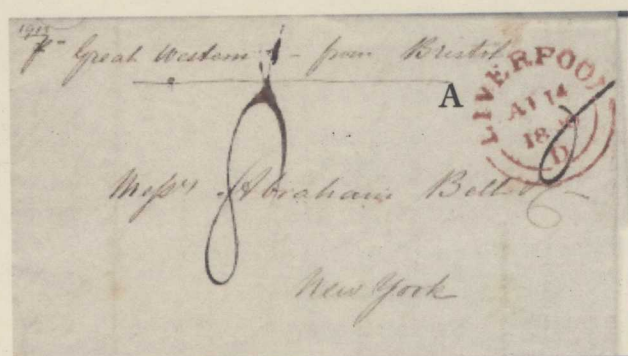 1915
pr Great Western - from Bristol
A
LIVERPOOL
AU 14
18
D
8
Messrs Abraham Bell
New York